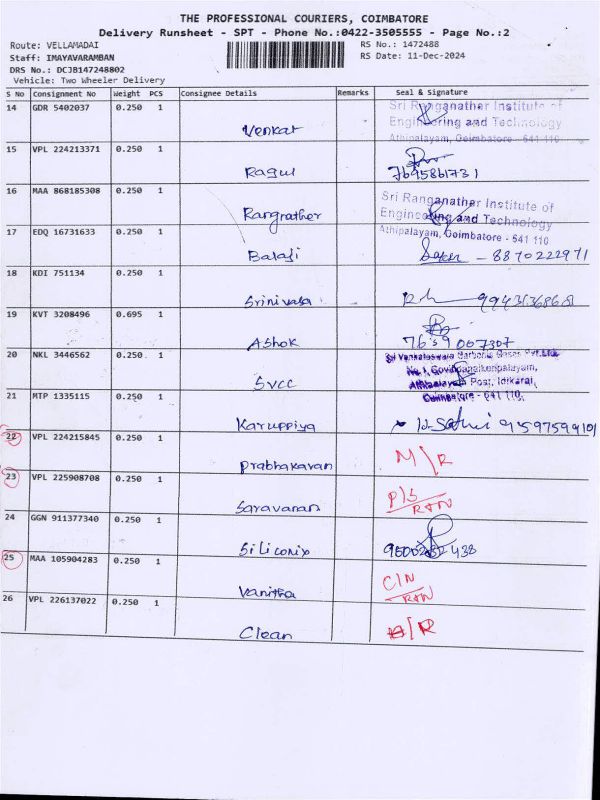 THE PROFESSIONAL COURIERS, COIMBATORE
Delivery Runsheet - SPT - Phone No.:0422-3505555 - Page No.:2
Route: VELLAMADAI RS No.: 1472488
Staff: IMAYAVARAMBAN RS Date: 11-Dec-2024
DRS No.: DCJB147248802
Vehicle: Two Wheeler Delivery
S No Consignment No Weight PCS Consignee Details Remarks Seal & Signature
14 GDR 5402037 0.250 1 Venkat
Sri Ranganathar Institute of
Engineering and Technology
Athipalayam, Coimbatore - 641 110
15 VPL 224213371 0.250 1 Ragul 7695861731
16 MAA 868185308 0.250 1 Rangnather
Sri Ranganathar Institute of
Engineering and Technology
Athipalayam, Coimbatore - 641 110
17 EDQ 16731633 0.250 1 Balaji - 8870222971
18 KDI 751134 0.250 1 Srinivasa
19 KVT 3208496 0.695 1 Ashok
20 NKL 3446562 0.250 1 SVCC
Sri Venkateswara Carbonic Gases Pvt.Ltd.
No.1, Govindanaickenpalayam,
Athipalayam Post, Idikarai,
Coimbatore - 641 110.
21 MTP 1335115 0.250 1 Karuppiya
22 VPL 224215845 0.250 1 Prabhakaran M/R
23 VPL 225908708 0.250 1 Saravanan P/S
24 GGN 911377340 0.250 1 Siliconix
25 MAA 105904283 0.250 1 Vanitha C/N
26 VPL 226137022 0.250 1 Clean